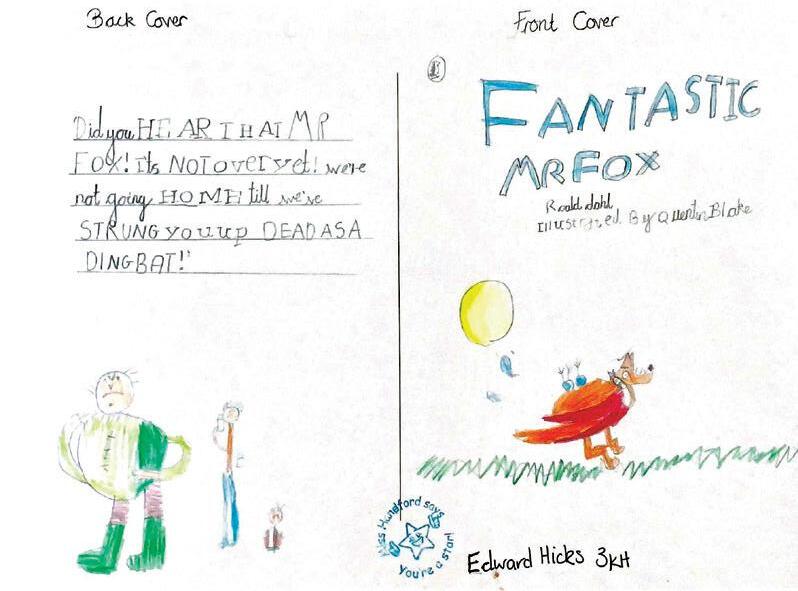 Back Cover
Did you HEAR THAT MR
FOX! Its NOT over yet! we're
not going HOME till we've
STRUNG you up DEAD AS A
DINGBAT!'
Front Cover
FANTASTIC
MR FOX
Roald dahl
Illustrated By Quentin Blake
Miss Hundford says
You're a star!
Edward Hicks 3KH